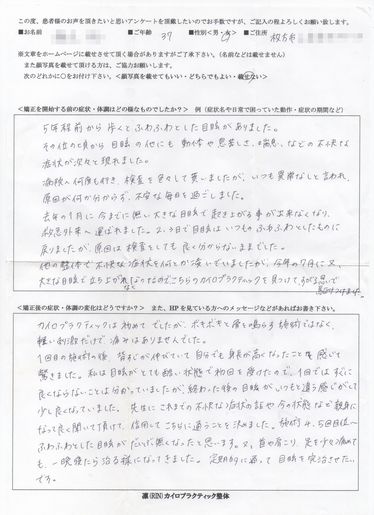 この度、患者様のお声を頂きたいと思いアンケートを頂戴したいのでお手数ですが、ご記入の程よろしくお願い致します。
■お名前 ■ご年齢 37 ■性別<男・女> ■ご住所 枚方市
※文章をホームページに載せさせて頂く場合がありますがご了承下さい。(名前などは載せません)
また顔写真を載せて頂ける方は、ご協力お願いします。
次のどれかに○をお付け下さい。<顔写真を載せてもいい・どちらでもよい・載せない>
<矯正を開始する前の症状・体調はどの様なものでしたか?> 例(症状名や日常で困っていた動作・症状の期間など)
5年程前から歩くとふわふわとした目眩がありました。
その位の頃から目眩の他にも動悸や息苦しさ、喘息、などの不快な
症状が次々と現れました。
病院へ何度も行き、検査を色々して貰いましたが、いつも異常なしと言われ、
原因が何か分からず、不安な毎日を過ごしました。
去年の1月に今までに無い大きな目眩で起き上がる事が出来なくなり、
救急外来へ運ばれました。2、3日で目眩はいつものふわふわとしたものに
戻りましたが、原因は検査をしても良く分からないままでした。
他の整体で不快な症状を何とか凌いでいましたが、今年の7月に又、
大きな目眩で立ち上がれなくなったのでこちらのカイロプラクティックを見つけて、
<矯正後の症状・体調の変化はどうですか?> また、HPを見ている方へのメッセージなどがあればお書き下さい。
カイロプラクティックは初めてでしたが、ボキボキと骨を鳴らす施術ではなく、
軽い刺激だけで、痛みはありませんでした。
1回目の施術の後、背すじが伸びていて自分でも身長が高くなったことを感じて
驚きました。私は目眩がとても酷い状態で初回を受けたので、1回ではすぐに
良くならないことは分かっていましたが、終わった後の目眩がいつもと違う感じがして
少し良くなっていました。先生にこれまでの不快な症状の話や今の状態など親身に
なって良く聞いて頂けて、信用してこちらに通うことを決めました。施術4、5回目位〜
ふわふわとした目眩がだいぶ無くなったと思います。又、首や肩こり、足を少し痛めて
も、一晩寝たら治る様になってきました。定期的に通って目眩を完治させたい
です。
凛(RIN)カイロプラクティック整体